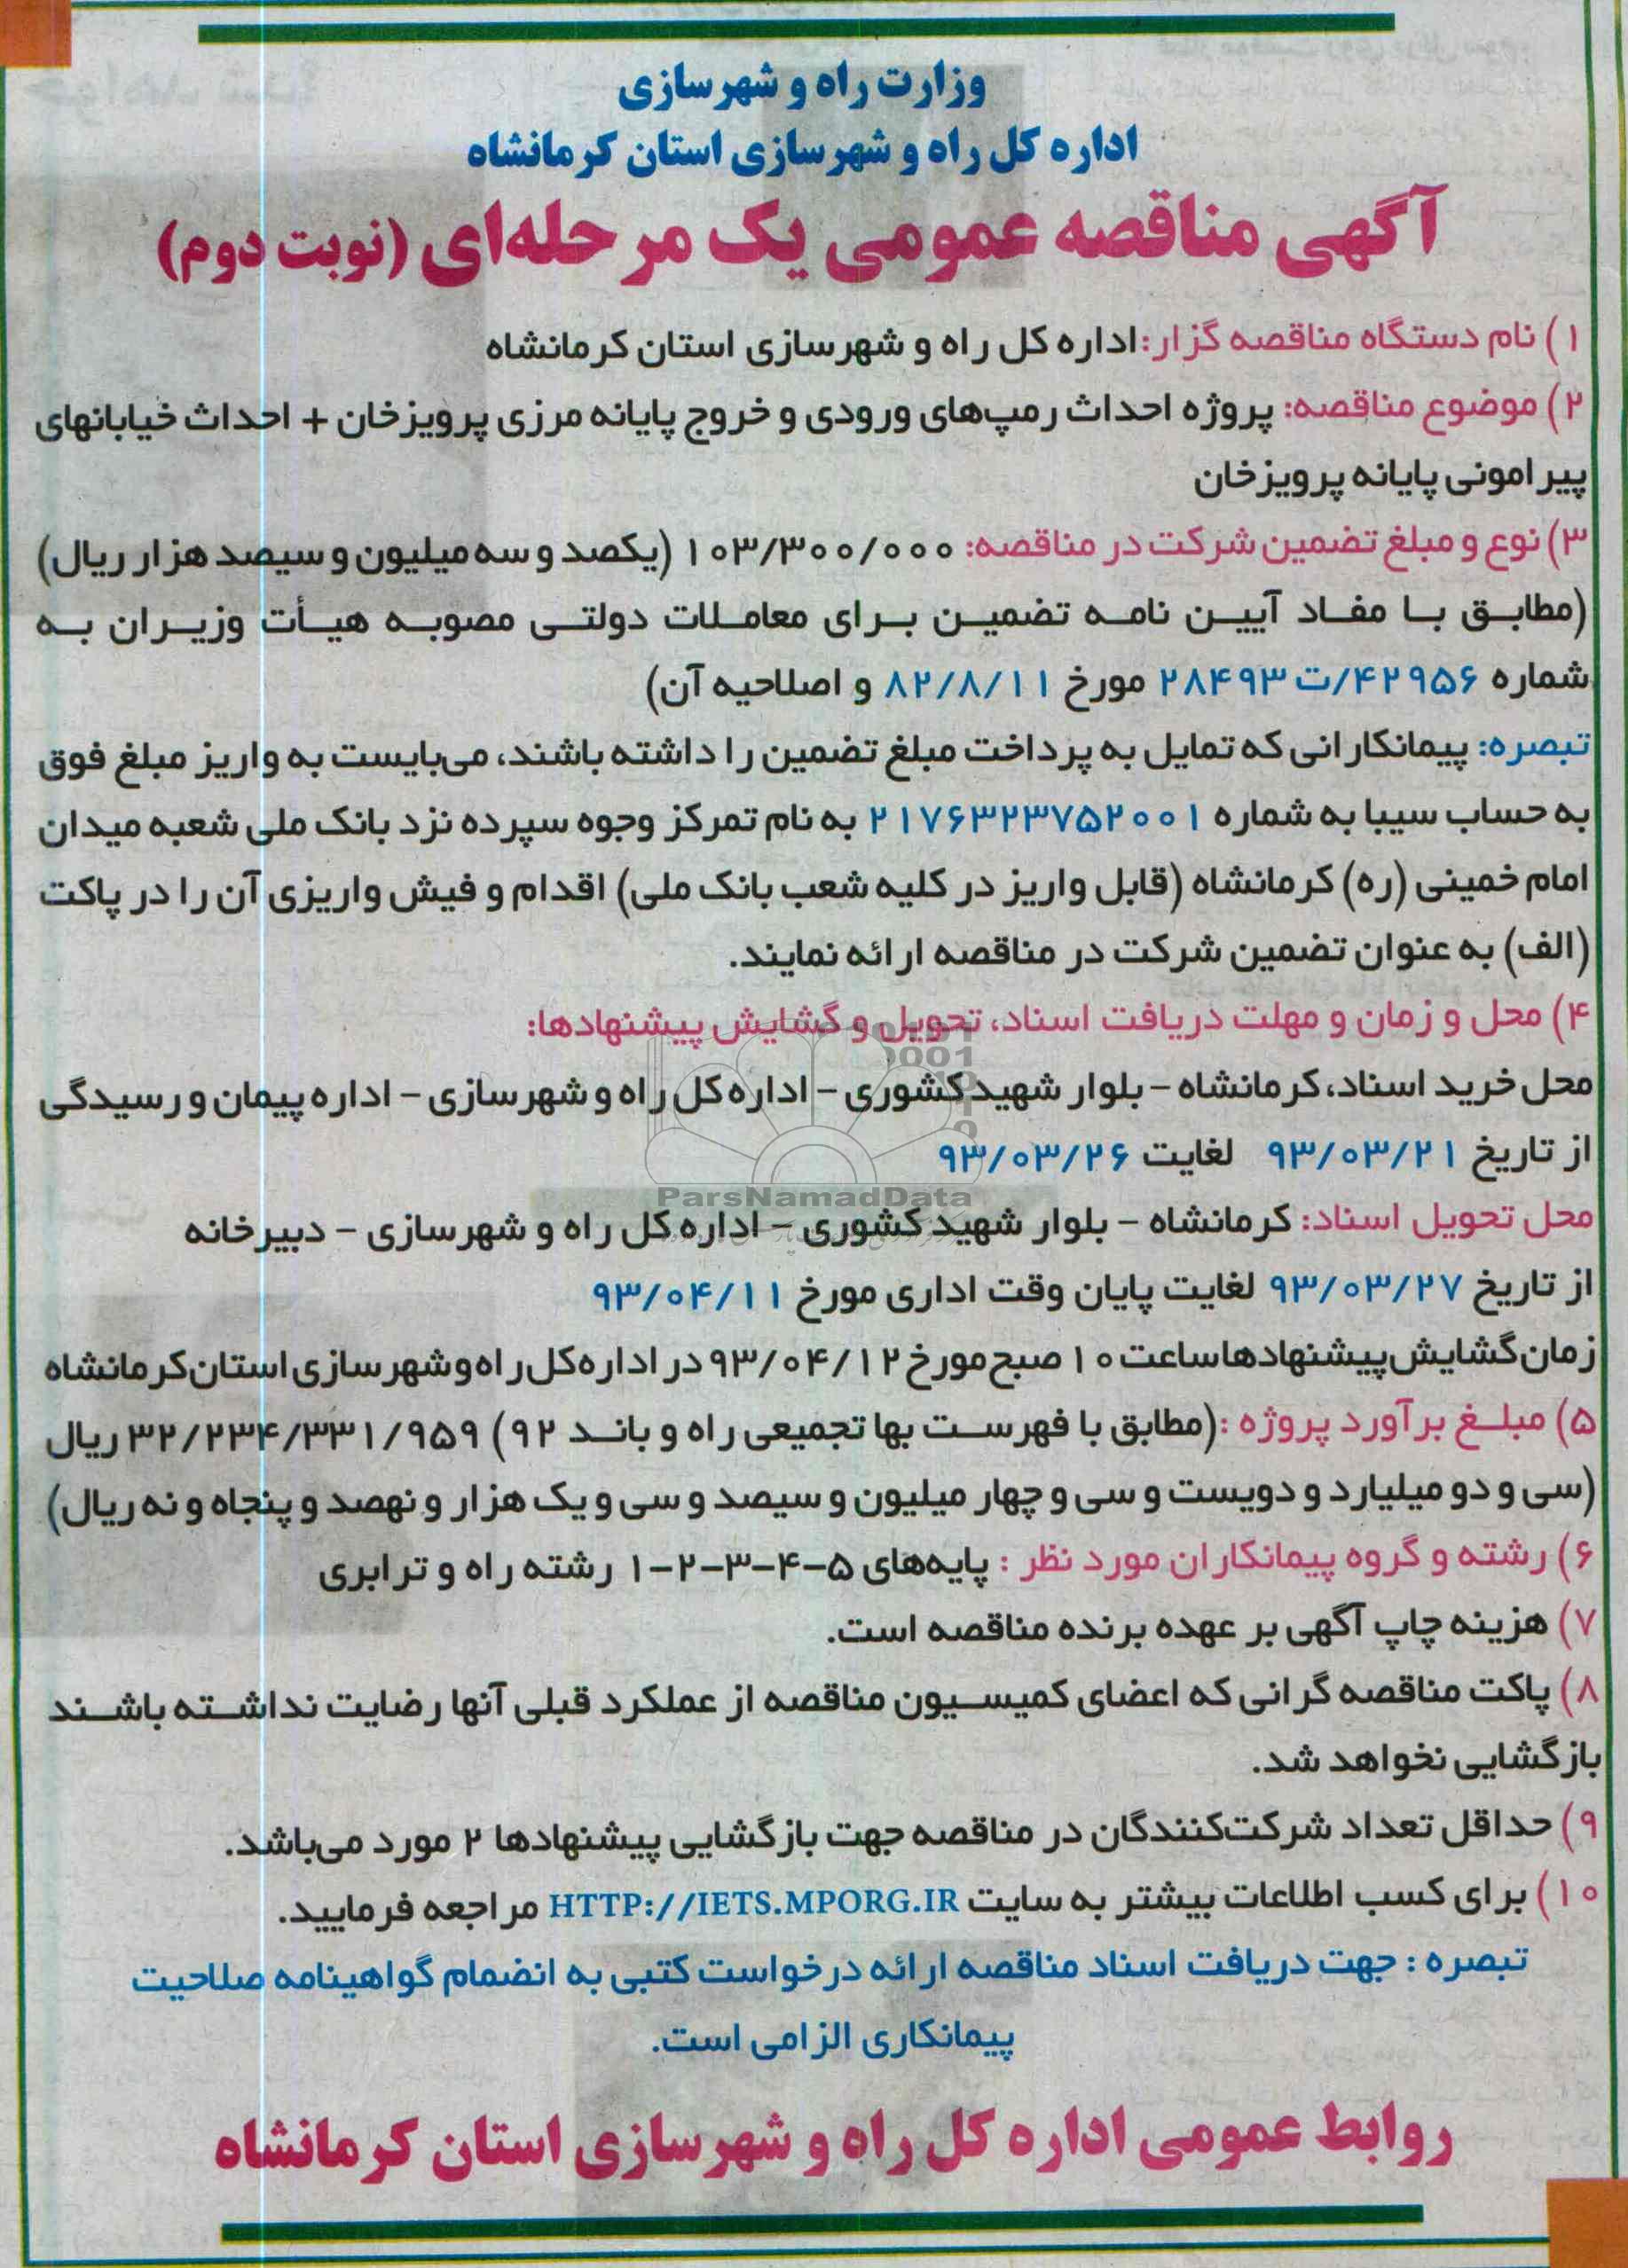 وزارت راه و شهرسازی
اداره کل راه و شهرسازی استان کرمانشاه
آگهی مناقصه عمومی یک مرحله‌ای (نوبت دوم)
۱) نام دستگاه مناقصه گزار: اداره کل راه و شهرسازی استان کرمانشاه
۲) موضوع مناقصه: پروژه احداث رمپ‌های ورودی و خروج پایانه مرزی پرویزخان + احداث خیابانهای
پیرامونی پایانه پرویزخان
۳) نوع و مبلغ تضمین شرکت در مناقصه: ۱۰۳/۳۰۰/۰۰۰ (یکصد و سه میلیون و سیصد هزار ریال)
(مطابق با مفاد آیین نامه تضمین برای معاملات دولتی مصوبه هیأت وزیران به
شماره ۴۲۹۵۶/ت ۲۸۴۹۳ مورخ ۸۲/۸/۱۱ و اصلاحیه آن)
تبصره: پیمانکارانی که تمایل به پرداخت مبلغ تضمین را داشته باشند، می‌بایست به واریز مبلغ فوق
به حساب سیبا به شماره ۲۱۷۶۳۲۳۷۵۲۰۰۱ به نام تمرکز وجوه سپرده نزد بانک ملی شعبه میدان
امام خمینی (ره) کرمانشاه (قابل واریز در کلیه شعب بانک ملی) اقدام و فیش واریزی آن را در پاکت
(الف) به عنوان تضمین شرکت در مناقصه ارائه نمایند.
۴) محل و زمان و مهلت دریافت اسناد، تحویل و گشایش پیشنهادها:
محل خرید اسناد، کرمانشاه – بلوار شهید کشوری – اداره کل راه و شهرسازی – اداره پیمان و رسیدگی
از تاریخ ۹۳/۰۳/۲۱ لغایت ۹۳/۰۳/۲۶
ParsNamadData
محل تحویل اسناد: کرمانشاه – بلوار شهید کشوری – اداره کل راه و شهرسازی – دبیرخانه
از تاریخ ۹۳/۰۳/۲۷ لغایت پایان وقت اداری مورخ ۹۳/۰۴/۱۱
زمان گشایش پیشنهادها ساعت ۱۰ صبح مورخ ۹۳/۰۴/۱۲ در اداره کل راه و شهرسازی استان کرمانشاه
۵) مبلغ برآورد پروژه : (مطابق با فهرست بها تجمیعی راه و باند ۹۲) ۳۲/۲۳۴/۳۳۱/۹۵۹ ریال
(سی و دو میلیارد و دویست و سی و چهار میلیون و سیصد و سی و یک هزار و نهصد و پنجاه و نه ریال)
۶) رشته و گروه پیمانکاران مورد نظر : پایه‌های ۵-۴-۳-۲-۱ رشته راه و ترابری
۷) هزینه چاپ آگهی بر عهده برنده مناقصه است.
۸) پاکت مناقصه گرانی که اعضای کمیسیون مناقصه از عملکرد قبلی آنها رضایت نداشته باشند
بازگشایی نخواهد شد.
۹) حداقل تعداد شرکت‌کنندگان در مناقصه جهت بازگشایی پیشنهادها ۲ مورد می‌باشد.
۱۰) برای کسب اطلاعات بیشتر به سایت HTTP://IETS.MPORG.IR مراجعه فرمایید.
تبصره : جهت دریافت اسناد مناقصه ارائه درخواست کتبی به انضمام گواهینامه صلاحیت
پیمانکاری الزامی است.
روابط عمومی اداره کل راه و شهرسازی استان کرمانشاه